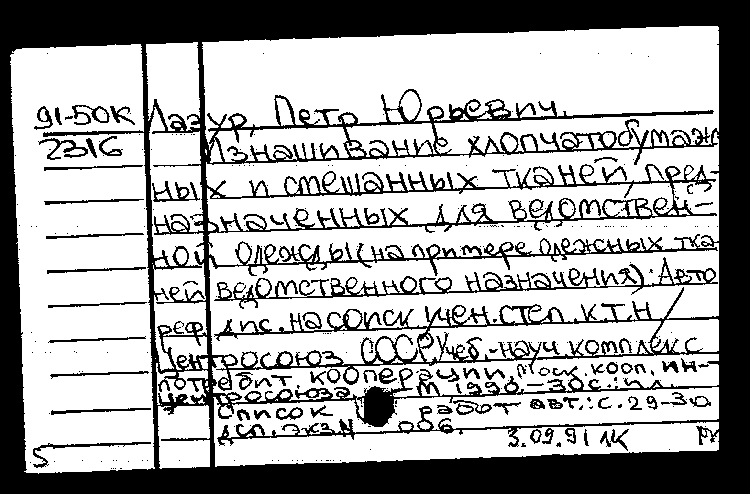 91-50К Лазур, Петр Юрьевич.
2316 Изнашивание хлопчатобумаж
ных и смешанных тканей, пред-
назначенных для ведомствен-
ной одежды (на примере одежных тка
ней ведомственного назначения): Авто
реф. дис. на соиск учен. степ. к.т.н /
Центросоюз СССР, Учеб.-науч комплекс
потребит кооперации, Моск. кооп. ин-т
Центросоюза. - М 1990. - 30с.: ил.
Список работ авт.: с. 29-30
дсп. экз.N 006.
3.09.91 лк
5